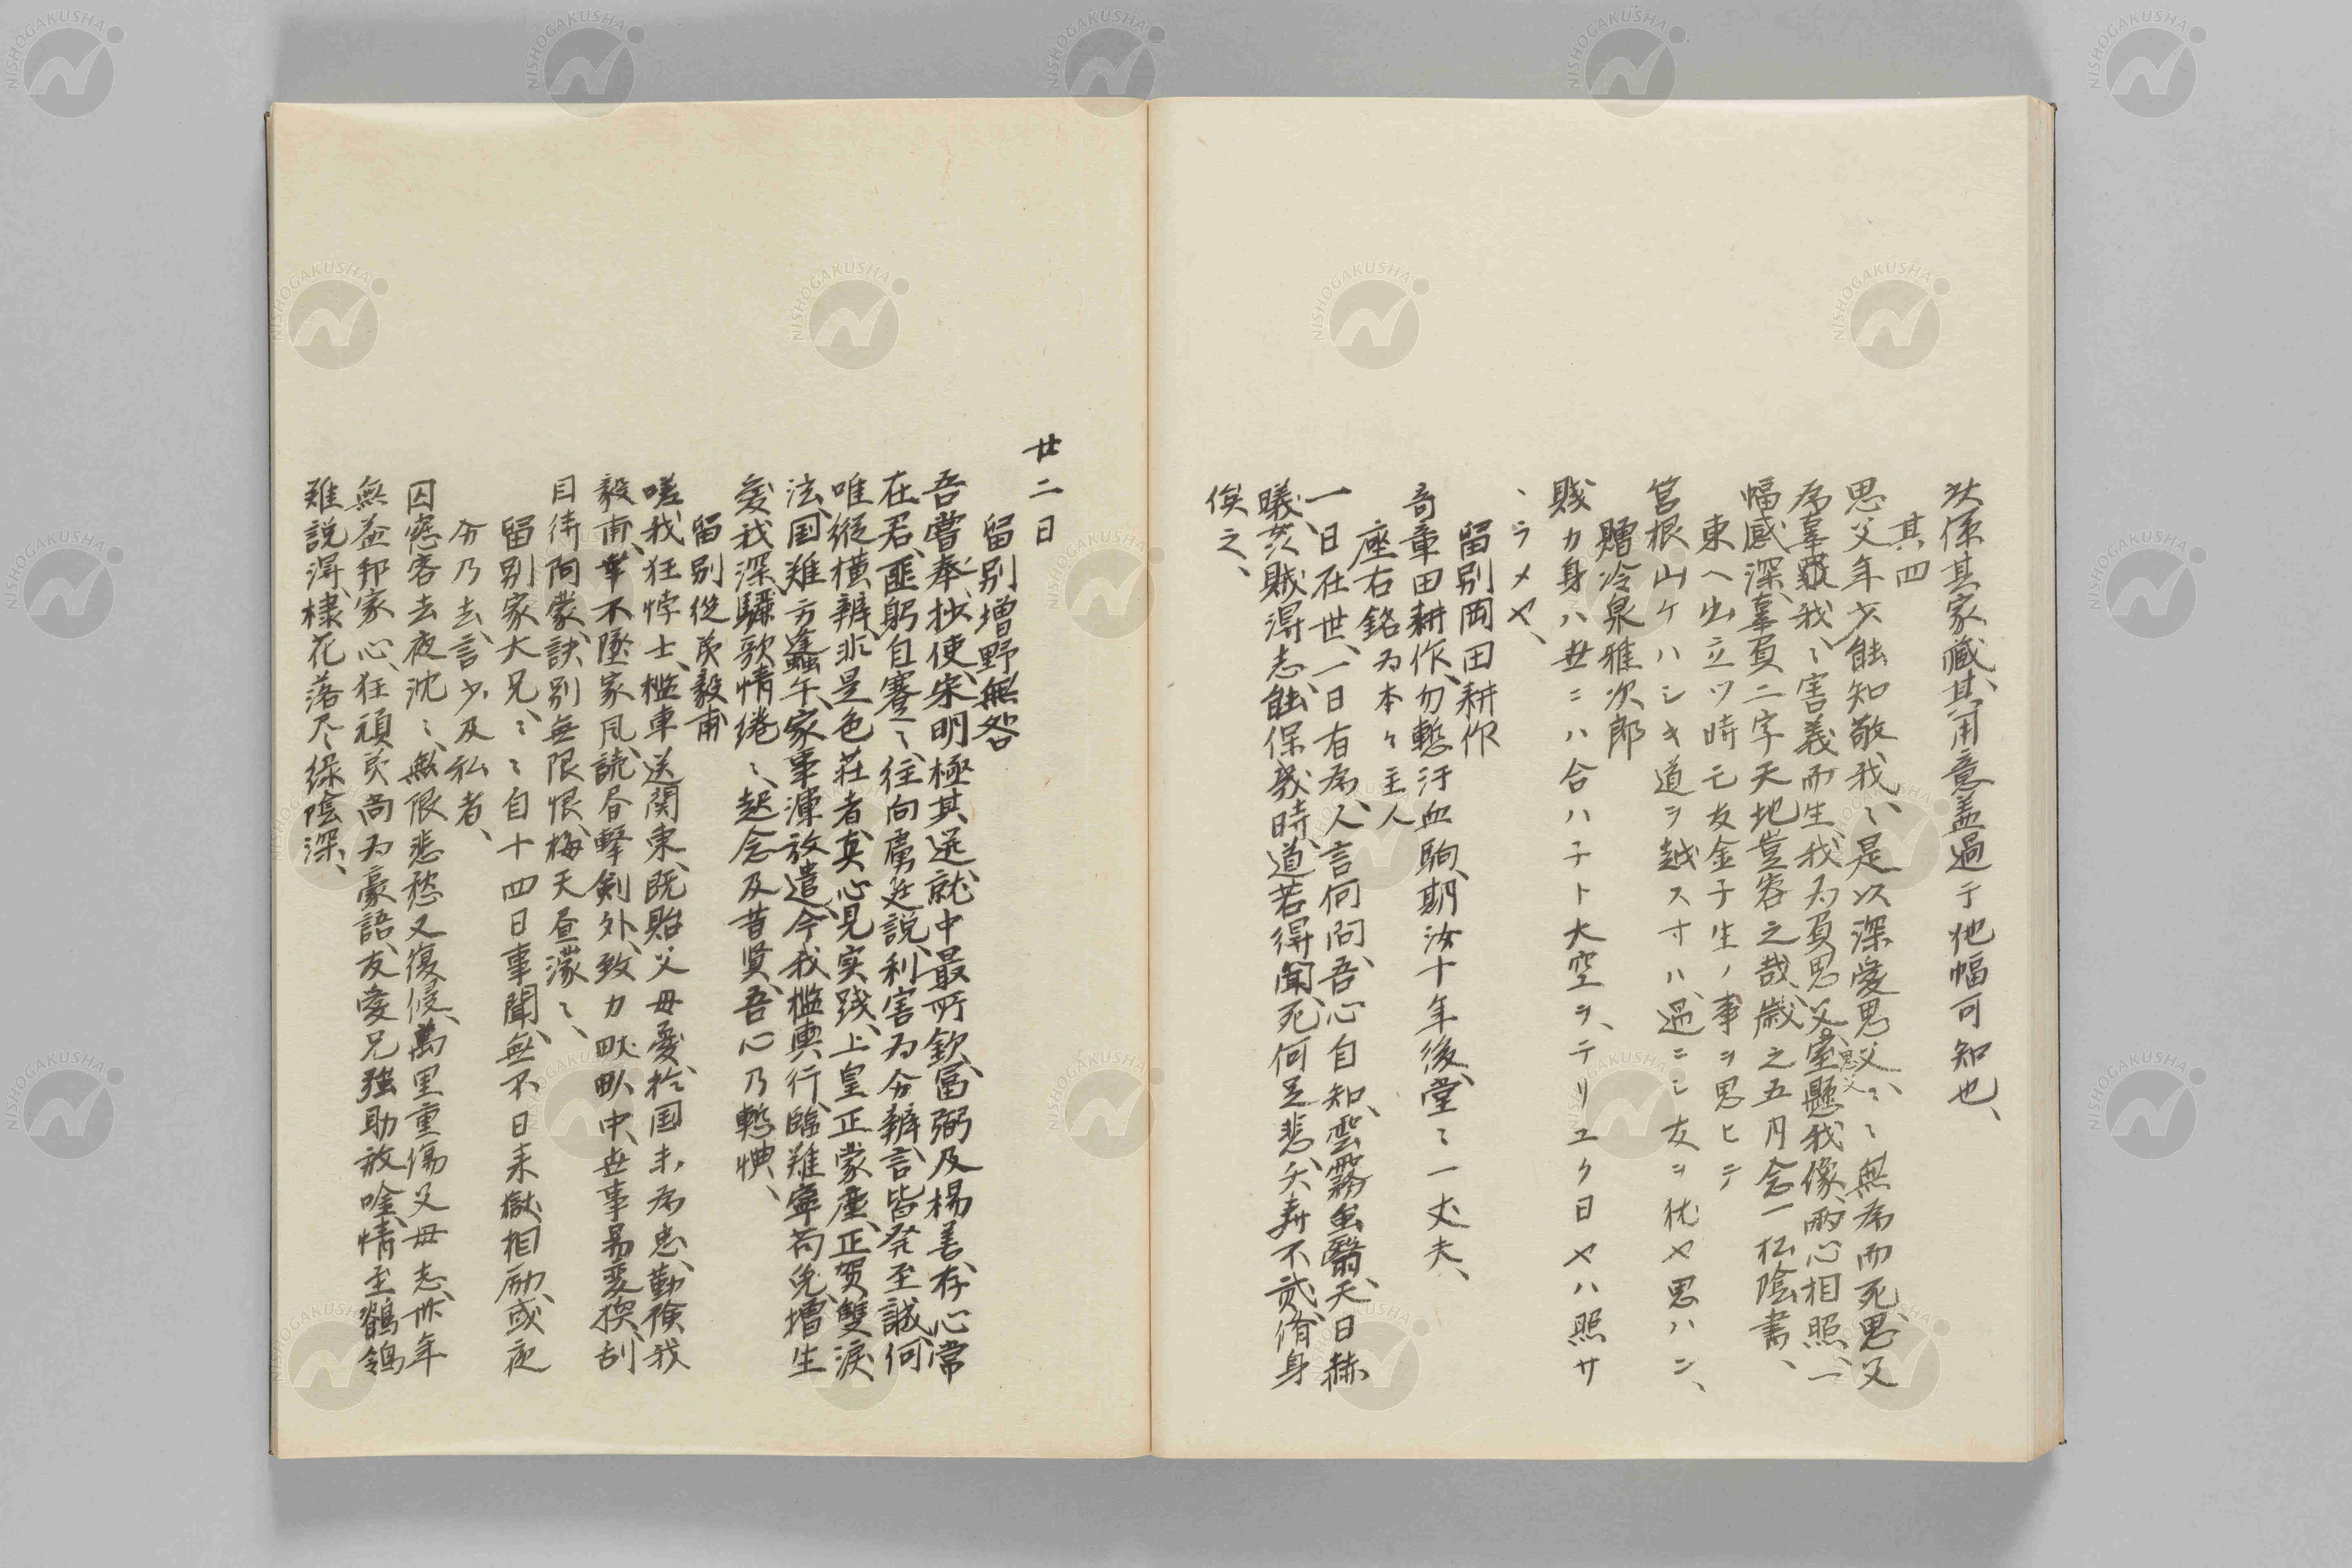 以係其家藏、其用意盖過于他幅可知也、
其四
思父年少能知敬我、我ミ是以深愛思父、ミミ無為而死、思父
為辜戮我、ミ害義而生、我为負思父、室懸我像、両心相照、一
思父
幅感深、辜負二字天地豈容之哉、歳之五月念一松陰書、
東ヘ出立ツ時亡友金子生ノ事ヲ思ヒテ
筥根山ケハシキ道ヲ越ス寸ハ過ニシ友ヲ猶ヤ思ハン、
贈冷泉雅次郎
賎カ身ハ世ニハ合ハ子ト大空ヲ、テリユク日ヤハ照サ
、ラメヤ、
留别岡田耕作
奇童田耕作、勿慙汗血駒、期汝十年後、堂ミ一丈夫、
座右銘为本々主人
一日在世、一日有為、人言何問、吾心自知、雲霧虽翳、天日赫
曦、艾賊得志、能保幾時、道若得聞、死何足悲、夭寿不貳、脩身
俟之、
廿二日
留别増野無咎
吾嘗奉抄使、宋明極其選、就中最所欽、富弼及楊善、存心常
在君、匪躬自蹇ミ、往向虜廷説、利害为分辨、言皆発至誠、何
唯縦横辨、非是色荘者、真心見実践、上皇正蒙塵、正贺雙淚
法、国難方蠭午、家事渾放遣、今我檻輿行、臨難寧苟免、増生
愛我深、驪歌情綣ミ、起念及昔賢、吾心乃慙悪、
留别従弟毅甫
嗟我狂悖士、檻車送関東、既貽父母憂、於国未為忠、勤倹我
毅甫、幸不墜家風、読書撃剣外、致力畎畝中、世事易変換、刮
目待阿蒙、訣别無限恨、梅天昼濛ミ、
留别家大兄、ミミ自十四日事聞、無不日来獄相励、或夜
分乃去、言少及私者、
囚窓客去夜沈ミ、無限悲愁又復侵、萬里重傷父母志、卅年
無益邦家心、狂頑弟尚为豪語、友愛兄強助放唫、情至鶺鴒
難説得、棣花落尽緑陰深、